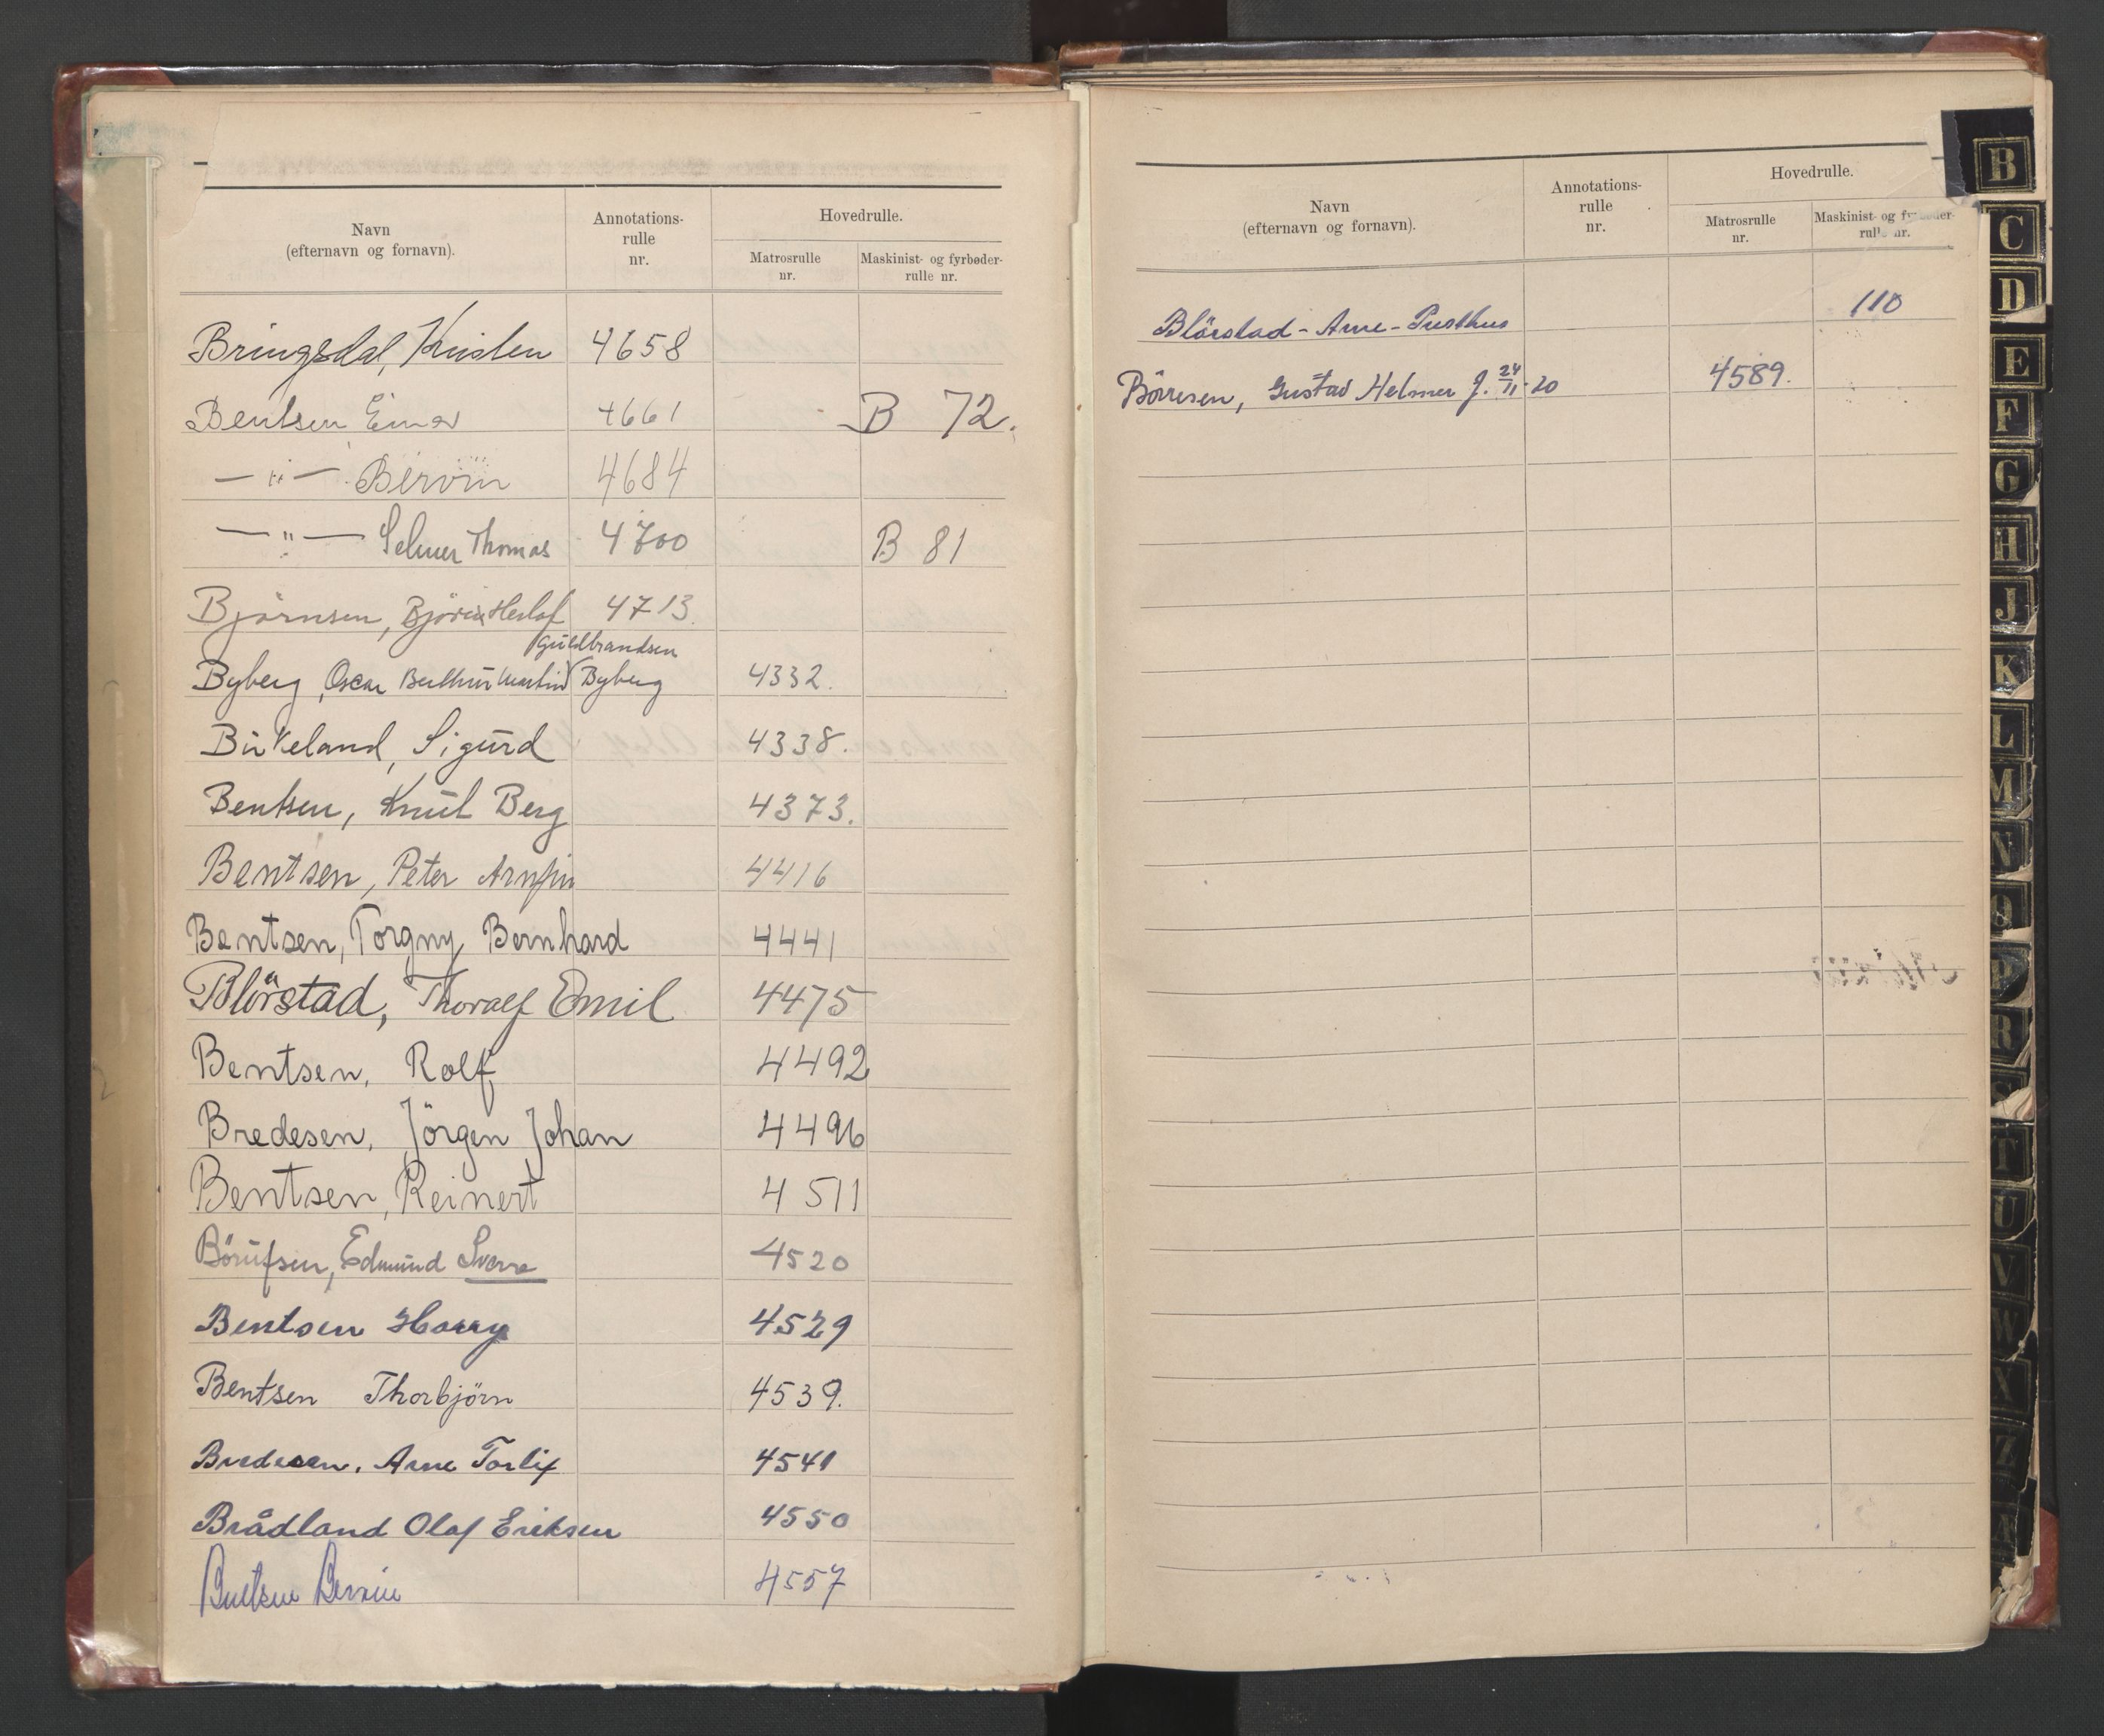 Navn
(efternavn og fornavn).
Annotations-
rulle
nr.
Hovedrulle.
Matrosrulle
nr.
Maskinist- og fyrbøder-
rulle nr.
Bringsdal, Kristen 4658
Bentsen Einar 4661 B 72.
— " — Bervin 4684
— " — Selmer Thomas 4700 B 81
Björnsen, Björn 4713
Guldbrandsen
Byberg, Oscar Berthin Martin Byberg 4332.
Birkeland, Sigurd 4338.
Bentsen, Knut Berg 4373.
Bentsen, Peter Arnfin 4416
Bentsen, Torgny Bernhard 4441
Blörstad, Thoralf Emil 4475
Bentsen, Rolf 4492
Bredesen, Jörgen Johan 4496
Bentsen, Reinert 4511
Börufsen, Edmund Sverre 4520
Bentsen Harry 4529
Bentsen Thorbjörn 4539.
Bredesen, Arne Torlif 4541
Brådland Olaf Eriksen 4550
Bentsen Bervin 4557
Navn
(efternavn og fornavn).
Annotations-
rulle
nr.
Hovedrulle.
Matrosrulle
nr.
Maskinist- og fyrbøder-
rulle nr.
Blörstad - Arne - Presthus 110
Börresen, Gustav Helmer f. 24/11-20 4589.
B
C
D
E
F
G
H
J
K
L
M
N
O
P
R
S
T
U
V
W
X
Z